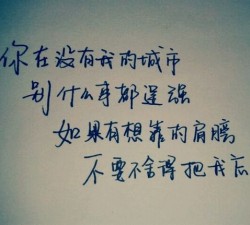 你在没有我的城市
别什么事都逞强
如果有想靠的肩膀
不要不舍得把我忘